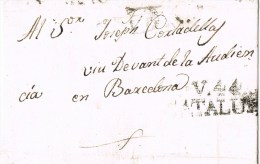 Al Sor Joseph Cortadellas
viu Devant de la Audien
cia en Barcelona